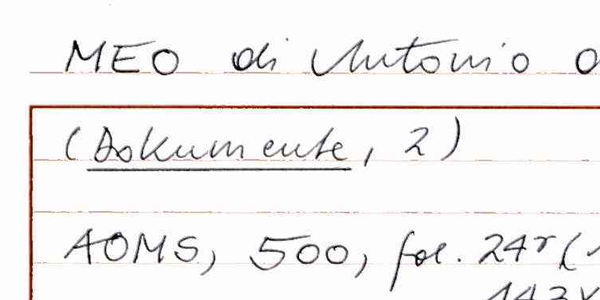 MEO di Antonio
(Dokumente, 2)
AOMS, 500, fol. 24r (
143v